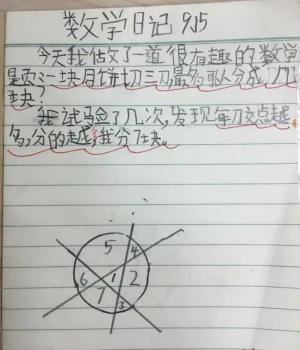 数学日记 9.15
今天我做了一道很有趣的数学
题:一块月饼切三刀最多可以分成几
块?
我试验了几次,发现每刀交点越
多,分的越多,我分7块。
5
4
6
1
2
7
3